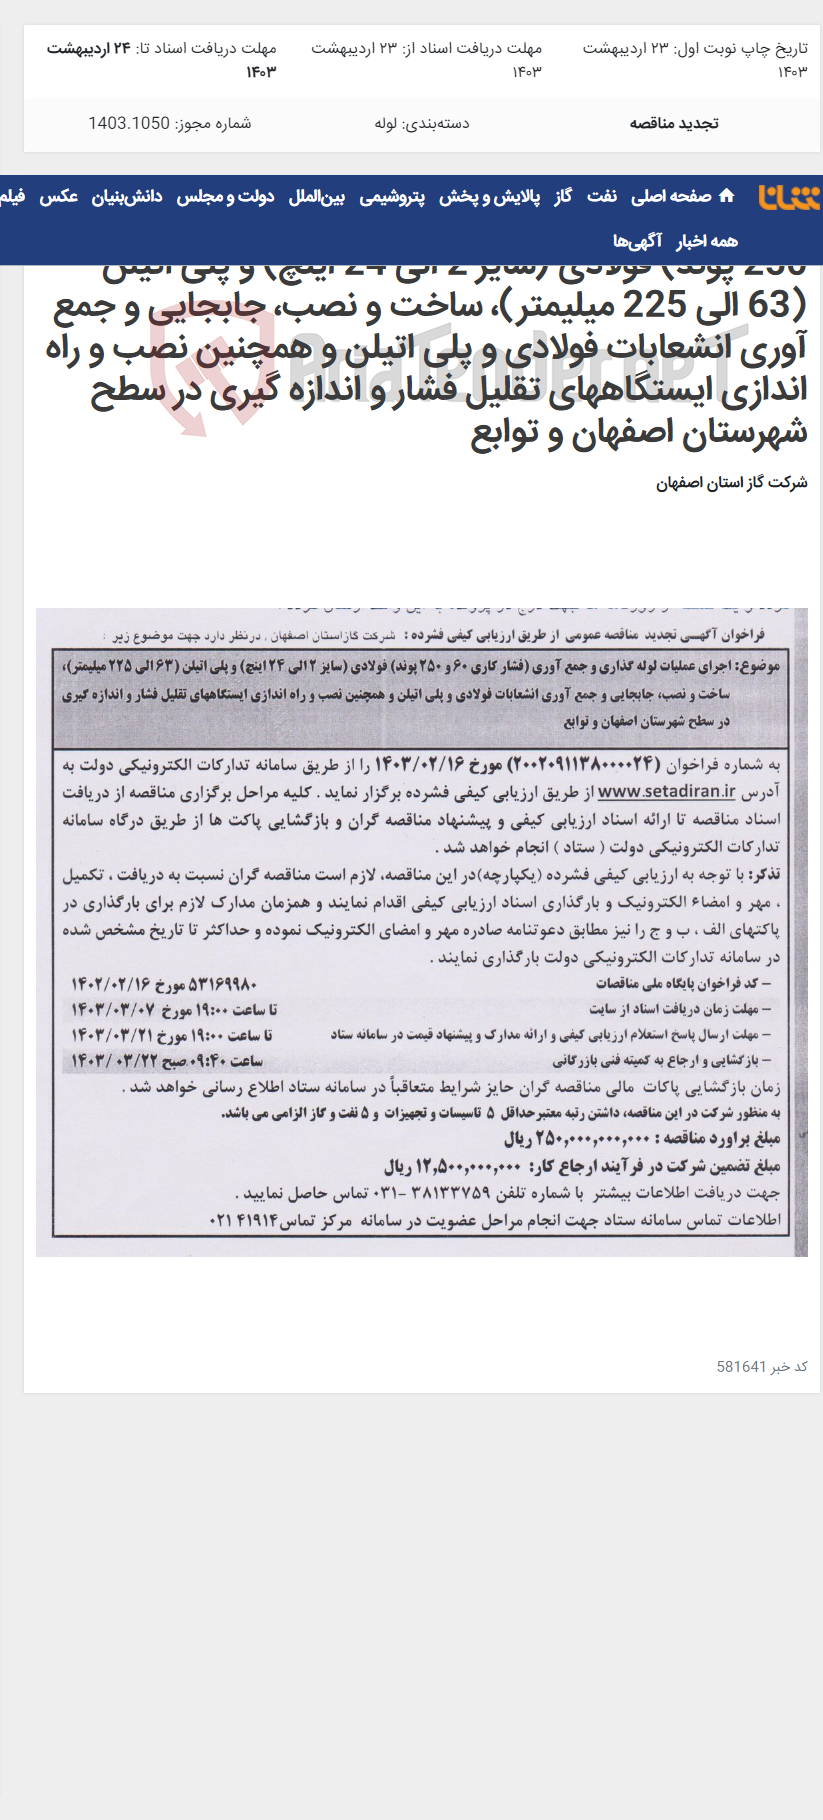 تاریخ چاپ نوبت اول: ۲۳ اردیبهشت ۱۴۰۳
مهلت دریافت اسناد از: ۲۳ اردیبهشت ۱۴۰۳
مهلت دریافت اسناد تا: ۲۴ اردیبهشت ۱۴۰۳
تجدید مناقصه
دسته‌بندی: لوله
شماره مجوز: 1403.1050
شانا
صفحه اصلی نفت گاز پالایش و پخش پتروشیمی بین‌الملل دولت و مجلس دانش‌بنیان عکس فیلم
همه اخبار آگهی‌ها
250 پوند) فولادی (سایز 2 الی 24 اینچ) و پلی اتیلن
(63 الی 225 میلیمتر)، ساخت و نصب، جابجایی و جمع
آوری انشعابات فولادی و پلی اتیلن و همچنین نصب و راه
اندازی ایستگاههای تقلیل فشار و اندازه گیری در سطح
شهرستان اصفهان و توابع
AriaTender.neT
شرکت گاز استان اصفهان
فراخوان آگهی تجدید مناقصه عمومی از طریق ارزیابی کیفی فشرده : شرکت گازاستان اصفهان , درنظر دارد جهت موضوع زیر :
موضوع: اجرای عملیات لوله گذاری و جمع آوری (فشار کاری ۶۰ و ۲۵۰ پوند) فولادی (سایز ۲ الی ۲۴ اینچ) و پلی اتیلن (۶۳ الی ۲۲۵ میلیمتر)،
ساخت و نصب، جابجایی و جمع آوری انشعابات فولادی و پلی اتیلن و همچنین نصب و راه اندازی ایستگاههای تقلیل فشار و اندازه گیری
در سطح شهرستان اصفهان و توابع
به شماره فراخوان (۲۰۰۲۰۹۱۱۳۸۰۰۰۰۲۴) مورخ ۱۴۰۳/۰۲/۱۶ را از طریق سامانه تدارکات الکترونیکی دولت به
آدرس www.setadiran.ir از طریق ارزیابی کیفی فشرده برگزار نماید . کلیه مراحل برگزاری مناقصه از دریافت
اسناد مناقصه تا ارائه اسناد ارزیابی کیفی و پیشنهاد مناقصه گران و بازگشایی پاکت ها از طریق درگاه سامانه
تدارکات الکترونیکی دولت ( ستاد ) انجام خواهد شد .
تذکر: با توجه به ارزیابی کیفی فشرده (یکپارچه)در این مناقصه، لازم است مناقصه گران نسبت به دریافت ، تکمیل
، مهر و امضاء الکترونیک و بارگذاری اسناد ارزیابی کیفی اقدام نمایند و همزمان مدارک لازم برای بارگذاری در
پاکتهای الف ، ب و ج را نیز مطابق دعوتنامه صادره مهر و امضای الکترونیک نموده و حداکثر تا تاریخ مشخص شده
در سامانه تدارکات الکترونیکی دولت بارگذاری نمایند .
– کد فراخوان پایگاه ملی مناقصات ۵۳۱۶۹۹۸۰ مورخ ۱۴۰۲/۰۲/۱۶
– مهلت زمان دریافت اسناد از سایت تا ساعت ۱۹:۰۰ مورخ ۱۴۰۳/۰۳/۰۷
– مهلت ارسال پاسخ استعلام ارزیابی کیفی و ارائه مدارک و پیشنهاد قیمت در سامانه ستاد تا ساعت ۱۹:۰۰ مورخ ۱۴۰۳/۰۳/۲۱
– بازگشایی و ارجاع به کمیته فنی بازرگانی ساعت ۰۹:۴۰ صبح ۱۴۰۳/ ۰۳/۲۲
زمان بازگشایی پاکات مالی مناقصه گران حایز شرایط متعاقباً در سامانه ستاد اطلاع رسانی خواهد شد .
به منظور شرکت در این مناقصه، داشتن رتبه معتبرحداقل ۵ تاسیسات و تجهیزات و ۵ نفت و گاز الزامی می باشد.
مبلغ براورد مناقصه : ۲۵۰,۰۰۰,۰۰۰,۰۰۰ ریال
مبلغ تضمین شرکت در فرآیند ارجاع کار: ۱۲,۵۰۰,۰۰۰,۰۰۰ ریال
جهت دریافت اطلاعات بیشتر با شماره تلفن ۳۸۱۳۳۷۵۹ -۰۳۱ تماس حاصل نمایید .
اطلاعات تماس سامانه ستاد جهت انجام مراحل عضویت در سامانه مرکز تماس۴۱۹۱۴ ۰۲۱
کد خبر 581641